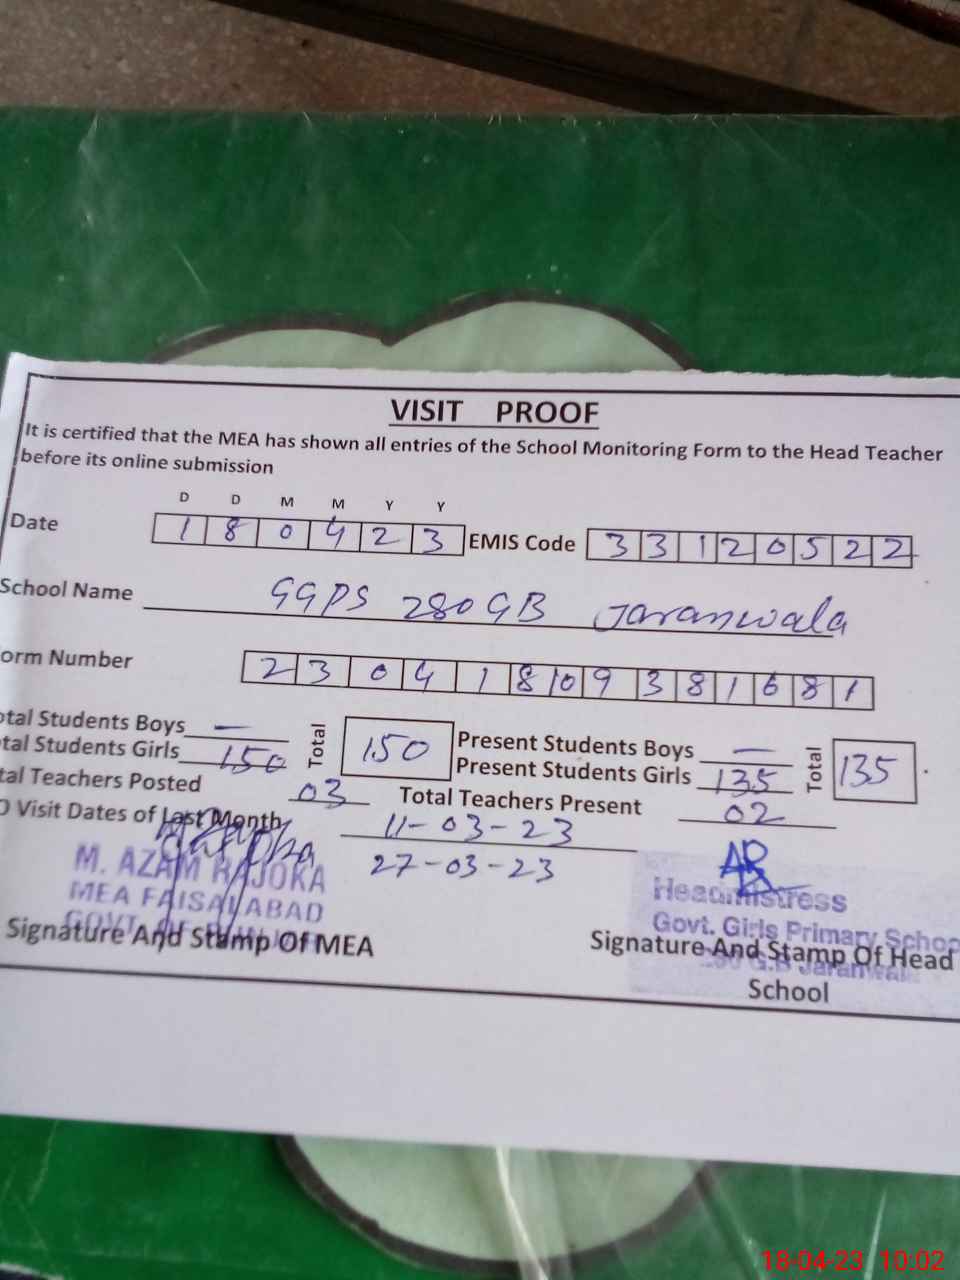 VISIT PROOF
It is certified that the MEA has shown all entries of the School Monitoring Form to the Head Teacher
before its online submission
D D M M Y Y
Date 1 8 0 4 2 3 EMIS Code 3 3 1 2 0 5 2 2
School Name GGPS 280 GB Jaranwala
orm Number 2 3 0 4 1 8 10 9 3 8 1 6 8 1
otal Students Boys — Total 150 Present Students Boys — Total 135
tal Students Girls 150 Present Students Girls 135
tal Teachers Posted 03 Total Teachers Present 02
O Visit Dates of Last Month 11-03-23
27-03-23
M. AZAM RAJOKA
MEA FAISALABAD
GOVT. OF
Signature And Stamp Of MEA
Headmistress
Govt. Girls Primary Schoo
G.B Jaranwal
Signature And Stamp Of Head
School
18-04-23 10:02